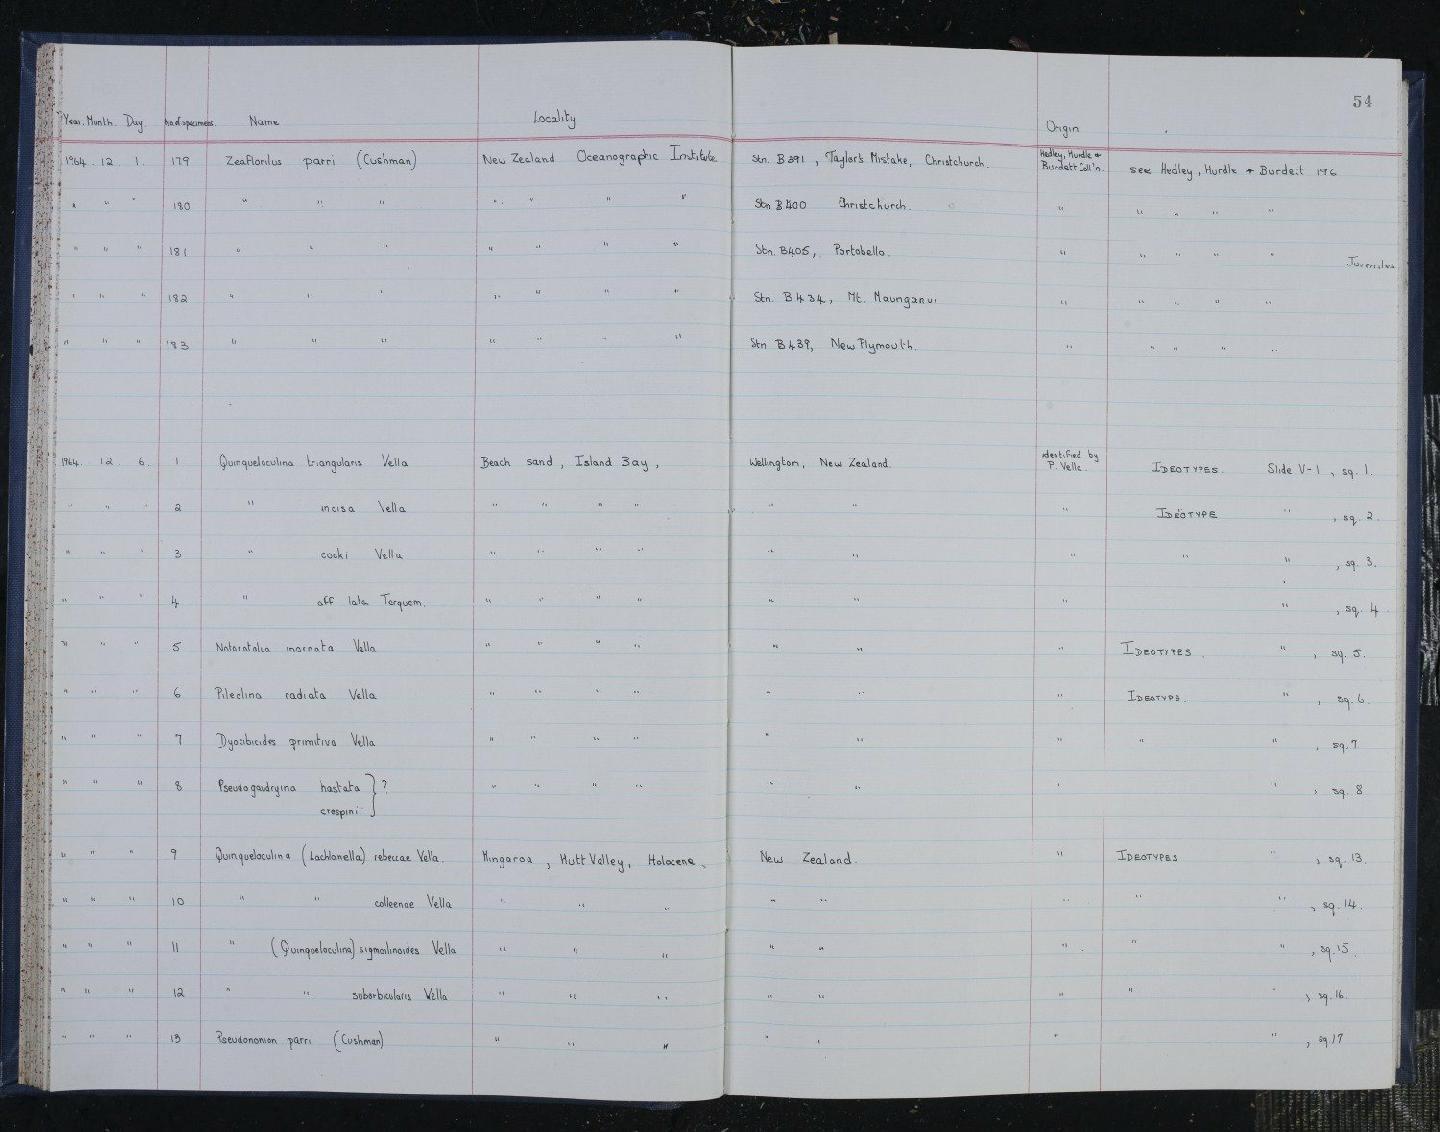 54
Year. Month. Day. no. of specimens. Name Locality Origin
1964 . 12 . 1. 179 Zeaflorilus parri (Cushman) New Zealand Oceanographic Institute Stn. B391, Taylor's Mistake, Christchurch. Hedley, Hurdle + Burdett Coll'n. see Hedley, Hurdle + Burdett 1965
" " " 180 " " " " " " " Stn B400 Christchurch. " " " " "
" " " 181 " " " " " " " Stn. B405, Portobello. " " " " " Juveniles
" " " 182 " " " " " " " Stn. B434, Mt. Maunganui " " " " "
" " " 183 " " " " " " " Stn B439, New Plymouth. " " " " "
1964. 12 6. 1 Quinqueloculina triangularis Vella Beach sand, Island Bay, Wellington, New Zealand. identified by P. Vella. IDEOTYPES. Slide V-1, sq. 1.
" " " 2 " incisa Vella " " " " " " " IDEOTYPE " , sq. 2.
" " " 3 " cooki Vella " " " " " " " " " , sq. 3.
" " " 4 " aff lata Terquem. " " " " " " " " , sq. 4
" " " 5 Notorotalia inornata Vella " " " " " " " IDEOTYPES. " , sq. 5.
" " " 6 Pileolina radiata Vella " " " " " " " IDEOTYPE. " , sq. 6.
" " " 7 Dyocibicides primitiva Vella " " " " " " " " " , sq. 7
" " " 8 Pseudogaudryina hastata } ? " " " " " " " " , sq. 8
crespini
" " " 9 Quinqueloculina (Lachlanella) rebeccae Vella. Mangaroa, Hutt Valley, Holocene, New Zealand. " IDEOTYPES " , sq. 13.
" " " 10 " " colleenae Vella " " " " " " " " , sq. 14.
" " " 11 " (Quinqueloculina) sigmoilinoides Vella " " " " " " " " , sq. 15.
" " " 12 " " suborbicularis Vella " " " " " " " " , sq. 16.
" " " 13 Pseudononion parri (Cushman) " " " " " " " , sq. 17